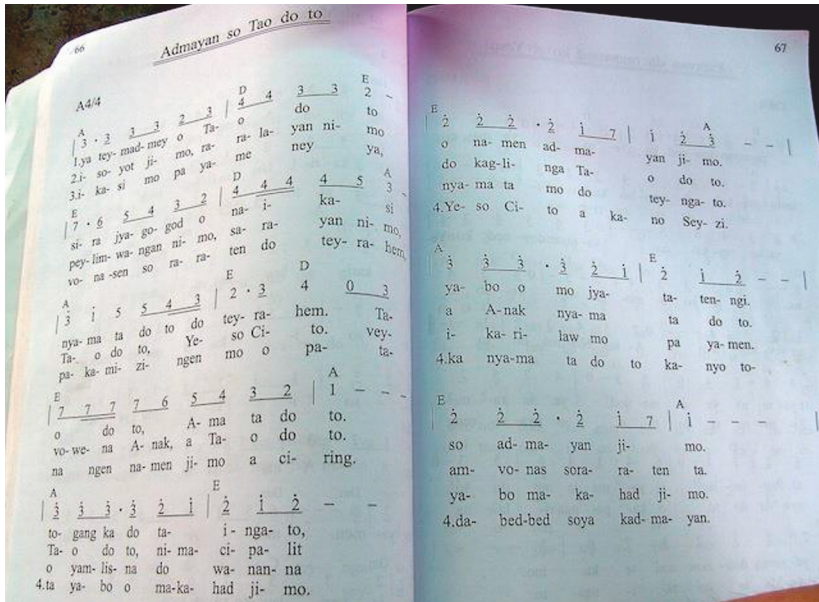 66
Admayan so Tao do to
A4/4
A D E
| 3 · 3 3 3 2 3 | 4 4 3 3 2 –
1.ya tey- mad- mey o Ta- o do to
2.i- so- yot ji- mo, ra- ra- la- yan ni- mo
3.i- ka- si mo pa ya- me ney ya,
E D A
| 7 · 6 5 4 3 2 | 4 4 4 4 5 3
si- ra jya- go- god o na- i- ka- si
pey- lim- wa- ngan ni- mo, sa- ra- yan ni- mo,
vo- na -sen so ra- ra- ten do tey- ra- hem,
A E D
| 3̇ i̇ 5 5 4 3 | 2 · 3 4 0 3
nya- ma ta do to do tey- ra- hem. Ta-
Ta- o do to, Ye- so Ci- to. vey-
pa- ka- mi- zi- ngen mo o pa- ta-
E A
| 7 7 7 7 6 5 4 3 2 | 1 – – –
o do to, A- ma ta do to.
vo- we- na A- nak, a Ta- o do to.
na ngen na- men ji- mo a ci- ring.
A E
| 3̇ 3̇ 3̇ · 3̇ 2̇ i̇ | 2̇ i̇ 2̇ – –
to- gang ka do ta- i - nga- to,
Ta- o do to, ni- ma- ci- pa- lit
o yam- lis- na do wa- nan- na
4.ta ya- bo o ma-ka- had ji- mo.
67
E A
| 2̇ 2̇ 2̇ · 2̇ i̇ 7 | i̇ 2̇ 3̇ – – |
o na- men ad- ma- yan ji- mo.
do kag-li- nga Ta- o do to.
nya- ma ta mo do tey- nga- to.
4.Ye- so Ci- to a ka- no Sey- zi.
A E
| 3̇ 3̇ 3̇ · 3̇ 2̇ i̇ | 2̇ i̇ 2̇ – – |
ya- bo o mo jya- ta- ten- ngi.
a A-nak nya- ma ta do to.
i- ka- ri- law mo pa ya- men.
4.ka nya-ma ta do to ka- nyo to-
E A
| 2̇ 2̇ 2̇ · 2̇ i̇ 7 | i̇ – – – |
so ad- ma- yan ji- mo.
am- vo- nas sora- ra- ten ta.
ya- bo ma- ka- had ji- mo.
4.da- bed-bed soya kad- ma- yan.